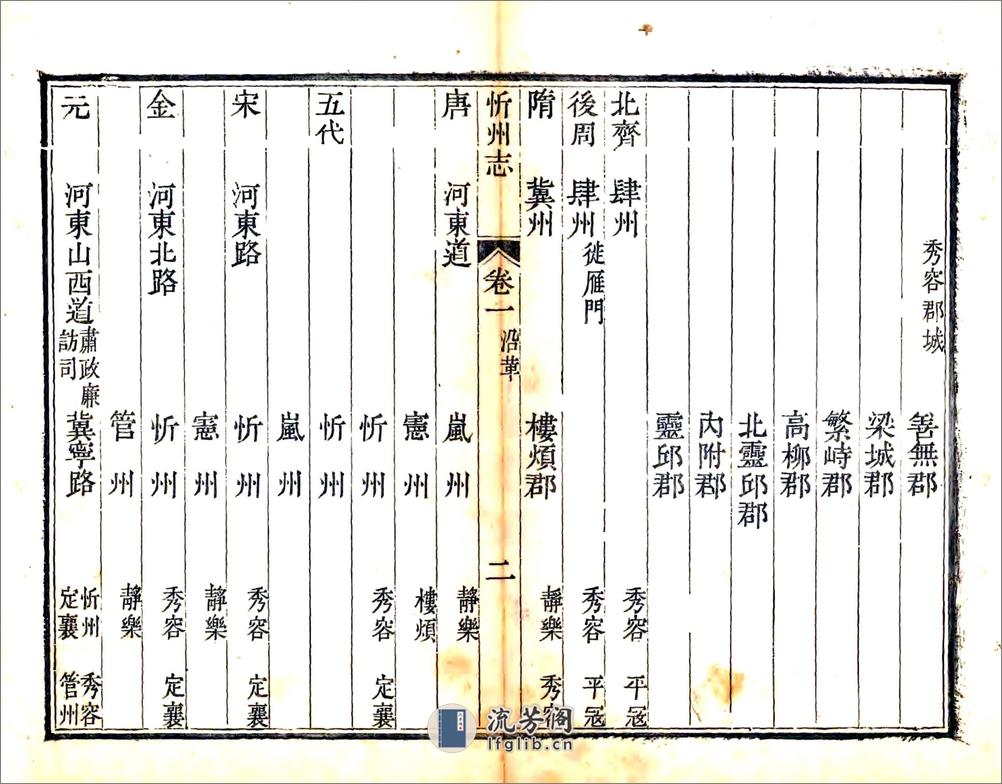 秀容郡城 善無郡
梁城郡
繁峙郡
高柳郡
北靈邱郡
內附郡
靈邱郡
北齊 肆州 秀容 平寇
後周 肆州 徙雁門 秀容 平寇
隋 冀州 樓煩郡 靜樂 秀容
忻州志 卷一 沿革 二
唐 河東道 嵐州 靜樂
憲州 樓煩
忻州 秀容 定襄
五代 忻州
嵐州
宋 河東路 忻州 秀容 定襄
憲州 靜樂
金 河東北路 忻州 秀容 定襄
管州 靜樂
元 河東山西道 肅政廉訪司 冀寧路 忻州 秀容 定襄 管州
流芳阁
lfglib.cn